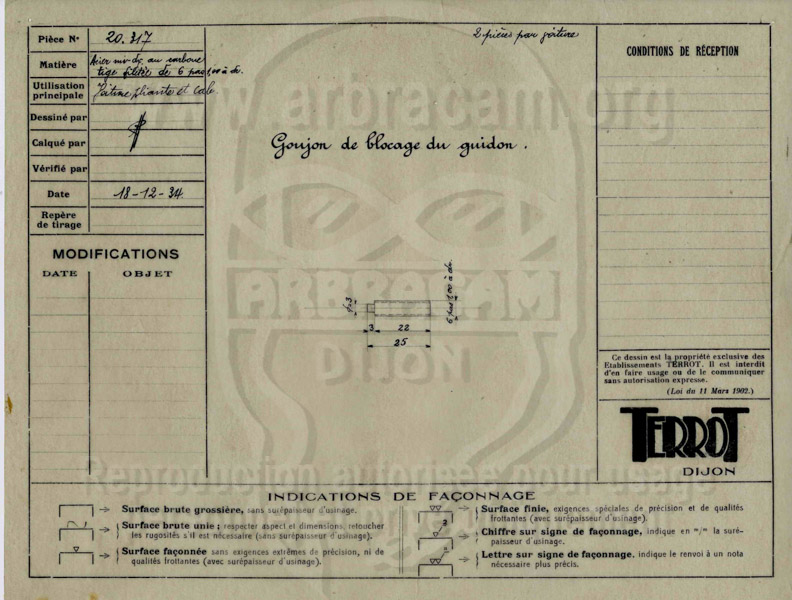 Pièce N° 20.317
2 pièces par
Matière Acier au carbone
tige filetée de 6 pas 1,00 à dr.
Utilisation
principale
Dessiné par
Calqué par
Vérifié par
Date 18-12-34
Repère
de tirage
MODIFICATIONS
DATE OBJET
Goujon de blocage du guidon.
3 22
25
6 pas 1,00 à dr.
CONDITIONS DE RÉCEPTION
Ce dessin est la propriété exclusive des
Etablissements TERROT. Il est interdit
d'en faire usage ou de le communiquer
sans autorisation expresse.
(Loi du 11 Mars 1902.)
TERROT
DIJON
INDICATIONS DE FAÇONNAGE
Surface brute grossière, sans surépaisseur d'usinage.
Surface brute unie ; respecter aspect et dimensions, retoucher
les rugosités s'il est nécessaire (sans surépaisseur d'usinage).
Surface façonnée sans exigences extrêmes de précision, ni de
qualités frottantes (avec surépaisseur d'usinage).
Surface finie, exigences spéciales de précision et de qualités
frottantes (avec surépaisseur d'usinage).
Chiffre sur signe de façonnage, indique en m/m la suré-
paisseur d'usinage.
Lettre sur signe de façonnage, indique le renvoi à un nota
nécessaire plus précis.
www.arbracam.org
ARBRACAM
DIJON
Reproduction autorisée pour usage